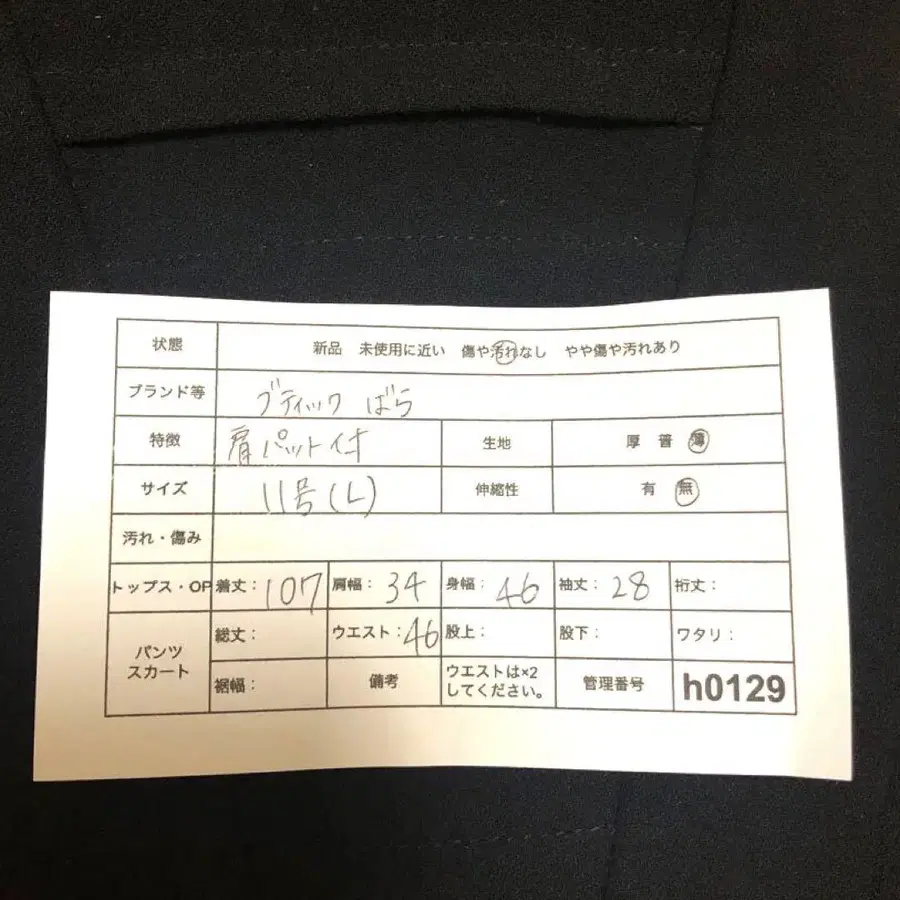 状態 新品 未使用に近い 傷や汚れなし やや傷や汚れあり
ブランド等 ブティック ばら
特徴 肩パット付 生地 厚 普 薄
サイズ 11号(L) 伸縮性 有 無
汚れ・傷み
トップス・OP 着丈: 107 肩幅: 34 身幅: 46 袖丈: 28 裄丈:
パンツ スカート 総丈: ウエスト: 46 股上: 股下: ワタリ:
裾幅: 備考 ウエストは×2してください。 管理番号 h0129